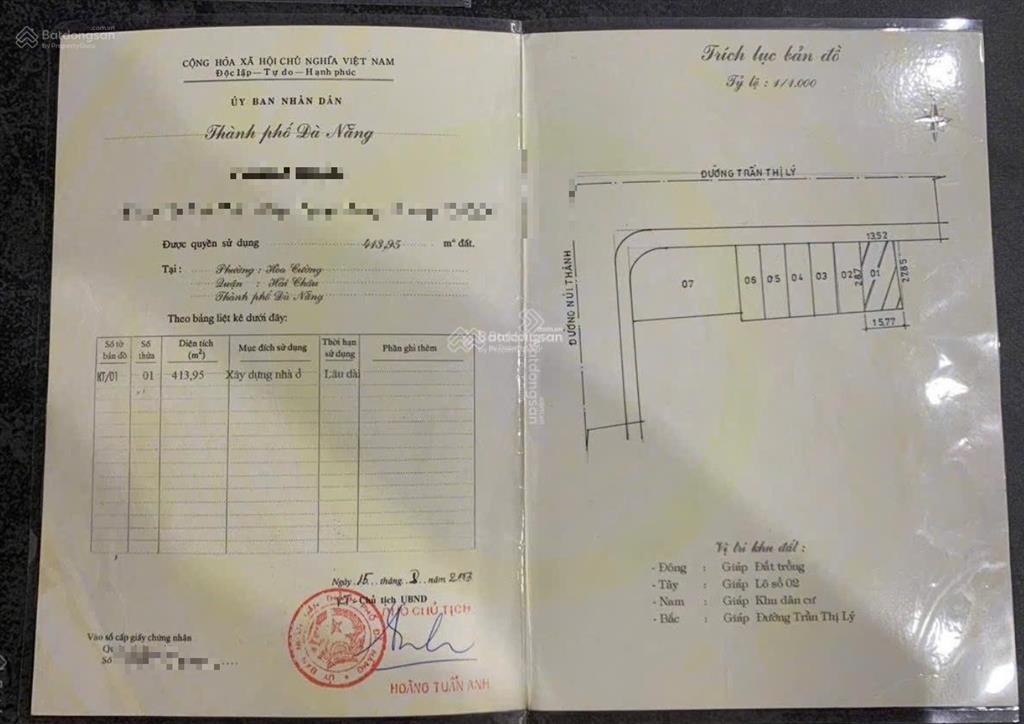 Batdongsan.com.vn
by PropertyGuru
CỘNG HÒA XÃ HỘI CHỦ NGHĨA VIỆT NAM
Độc lập - Tự do - Hạnh phúc
ỦY BAN NHÂN DÂN
Thành phố Đà Nẵng
Được quyền sử dụng 413,95 m² đất.
Tại : Phường : Hòa Cường
Quận : Hải Châu
Thành phố Đà Nẵng
Theo bảng liệt kê dưới đây:
Số tờ bản đồ Số thửa Diện tích (m²) Mục đích sử dụng Thời hạn sử dụng Phần ghi thêm
KT/01 01 413,95 Xây dựng nhà ở Lâu dài
Ngày 15 tháng 8 năm 2003
Chủ tịch UBND
PHÓ CHỦ TỊCH
Vào sổ cấp giấy chứng nhận
Số
HOÀNG TUẤN ANH
Trích lục bản đồ
Tỷ lệ : 1/1.000
ĐƯỜNG TRẦN THỊ LÝ
ĐƯỜNG NÚI THÀNH
13,52
07 06 05 04 03 02 01
15,77
Batdongsan
by PropertyGuru
Vị trí khu đất :
- Đông : Giáp Đất trống
- Tây : Giáp Lô số 02
- Nam : Giáp Khu dân cư
- Bắc : Giáp Đường Trần Thị Lý
Batdongsan.com.vn
by PropertyGuru